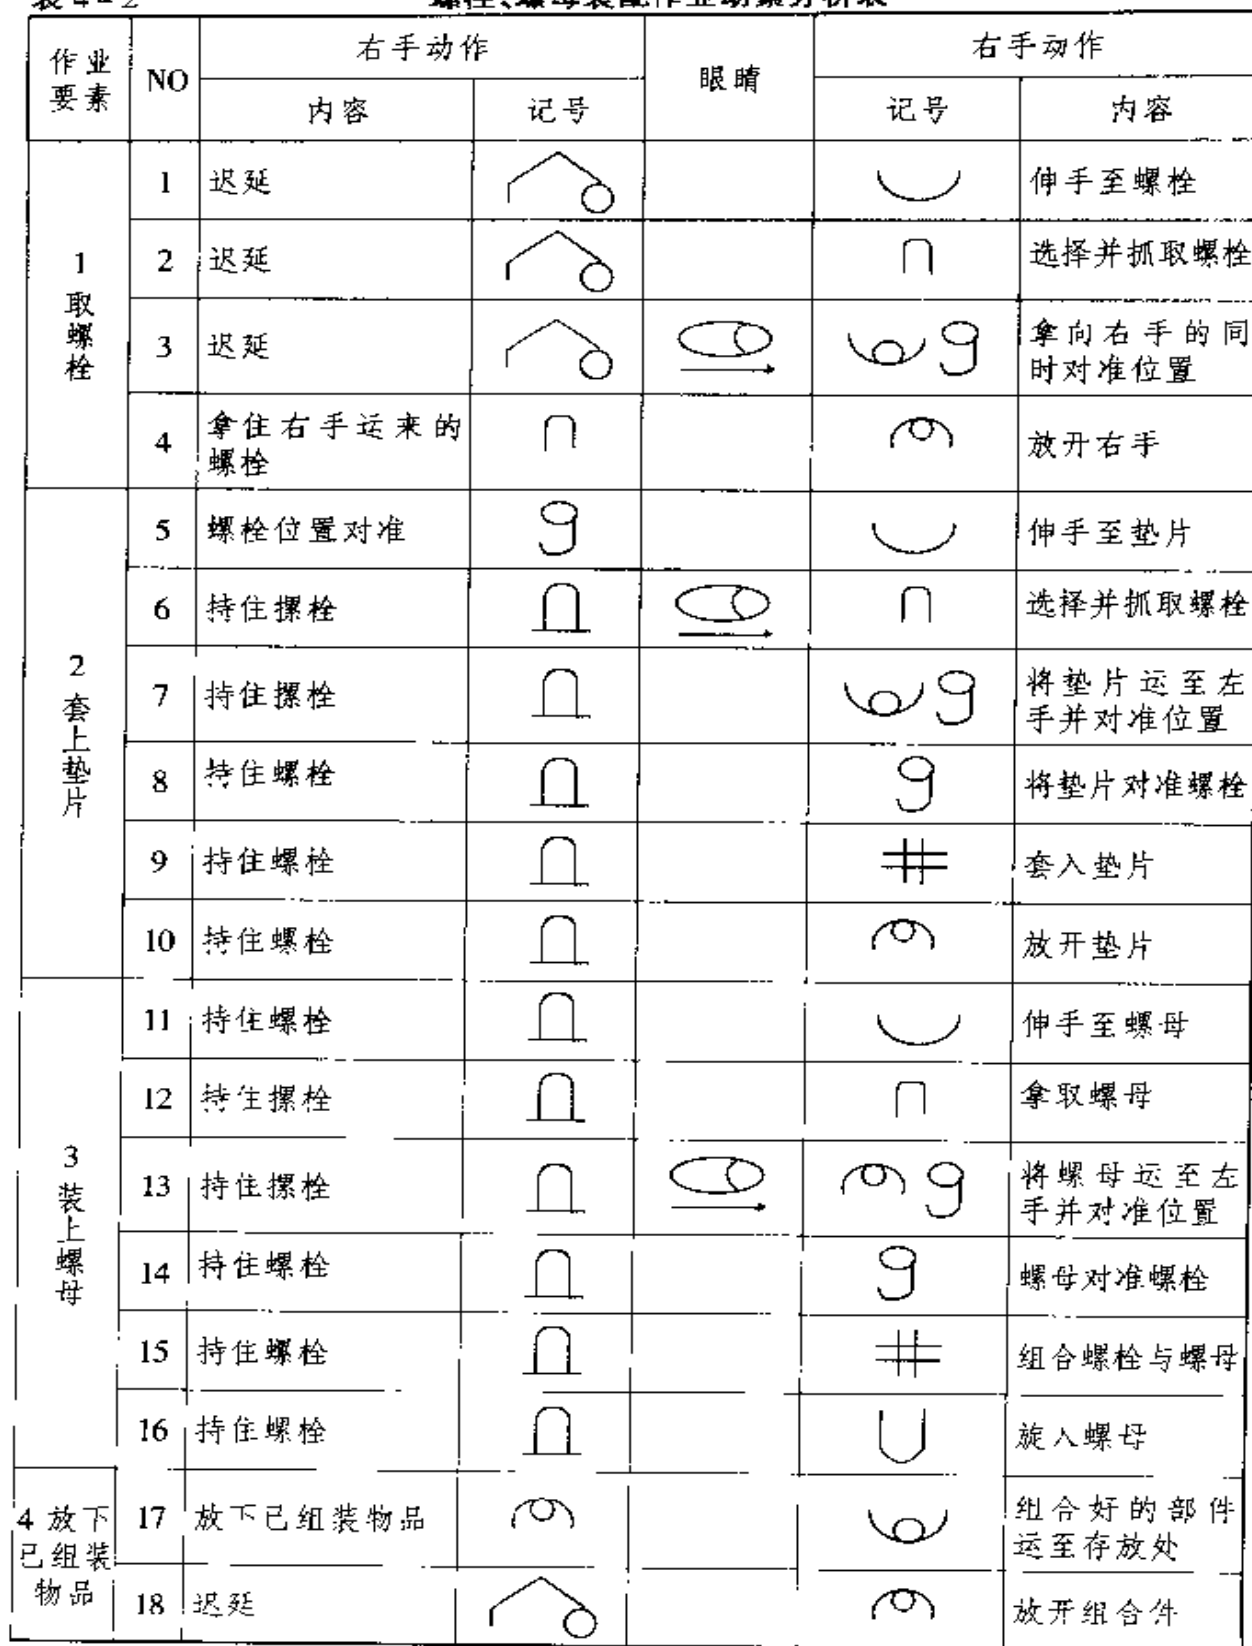 表 4-2 螺栓、螺母装配作业动素分析表
作业
要素
NO
右手动作
眼睛
右手动作
内容
记号
记号
内容
1
取
螺
栓
1 迟延 伸手至螺栓
2 迟延 选择并抓取螺栓
3 迟延 拿向右手的同
时对准位置
4 拿住右手运来的
螺栓
放开右手
2
套
上
垫
片
5 螺栓位置对准 伸手至垫片
6 持住摞栓 选择并抓取螺栓
7 持住摞栓 将垫片运至左
手并对准位置
8 持住螺栓 将垫片对准螺栓
9 持住螺栓 套入垫片
10 持住螺栓 放开垫片
3
装
上
螺
母
11 持住螺栓 伸手至螺母
12 持住摞栓 拿取螺母
13 持住摞栓 将螺母运至左
手并对准位置
14 持住螺栓 螺母对准螺栓
15 持住螺栓 组合螺栓与螺母
16 持住螺栓 旋入螺母
4 放下
已组装
物品
17 放下已组装物品 组合好的部件
运至存放处
18 迟延 放开组合件